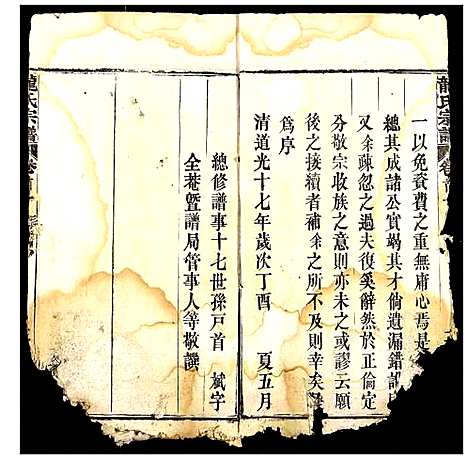 龍氏宗譜
一以免資費之重無庸心焉是
總其成諸公實竭其才倘遺漏錯訛
又余疎忽之過夫復奚辭然於正倫定
分敬宗收族之意則亦未之或謬云願
後之接續者補余之所不及則幸矣
爲序
清道光十七年歲次丁酉 夏五月
總修譜事十七世孫戸首 斌宇
全菴暨譜局管事人等敬撰
龍氏宗譜 卷首